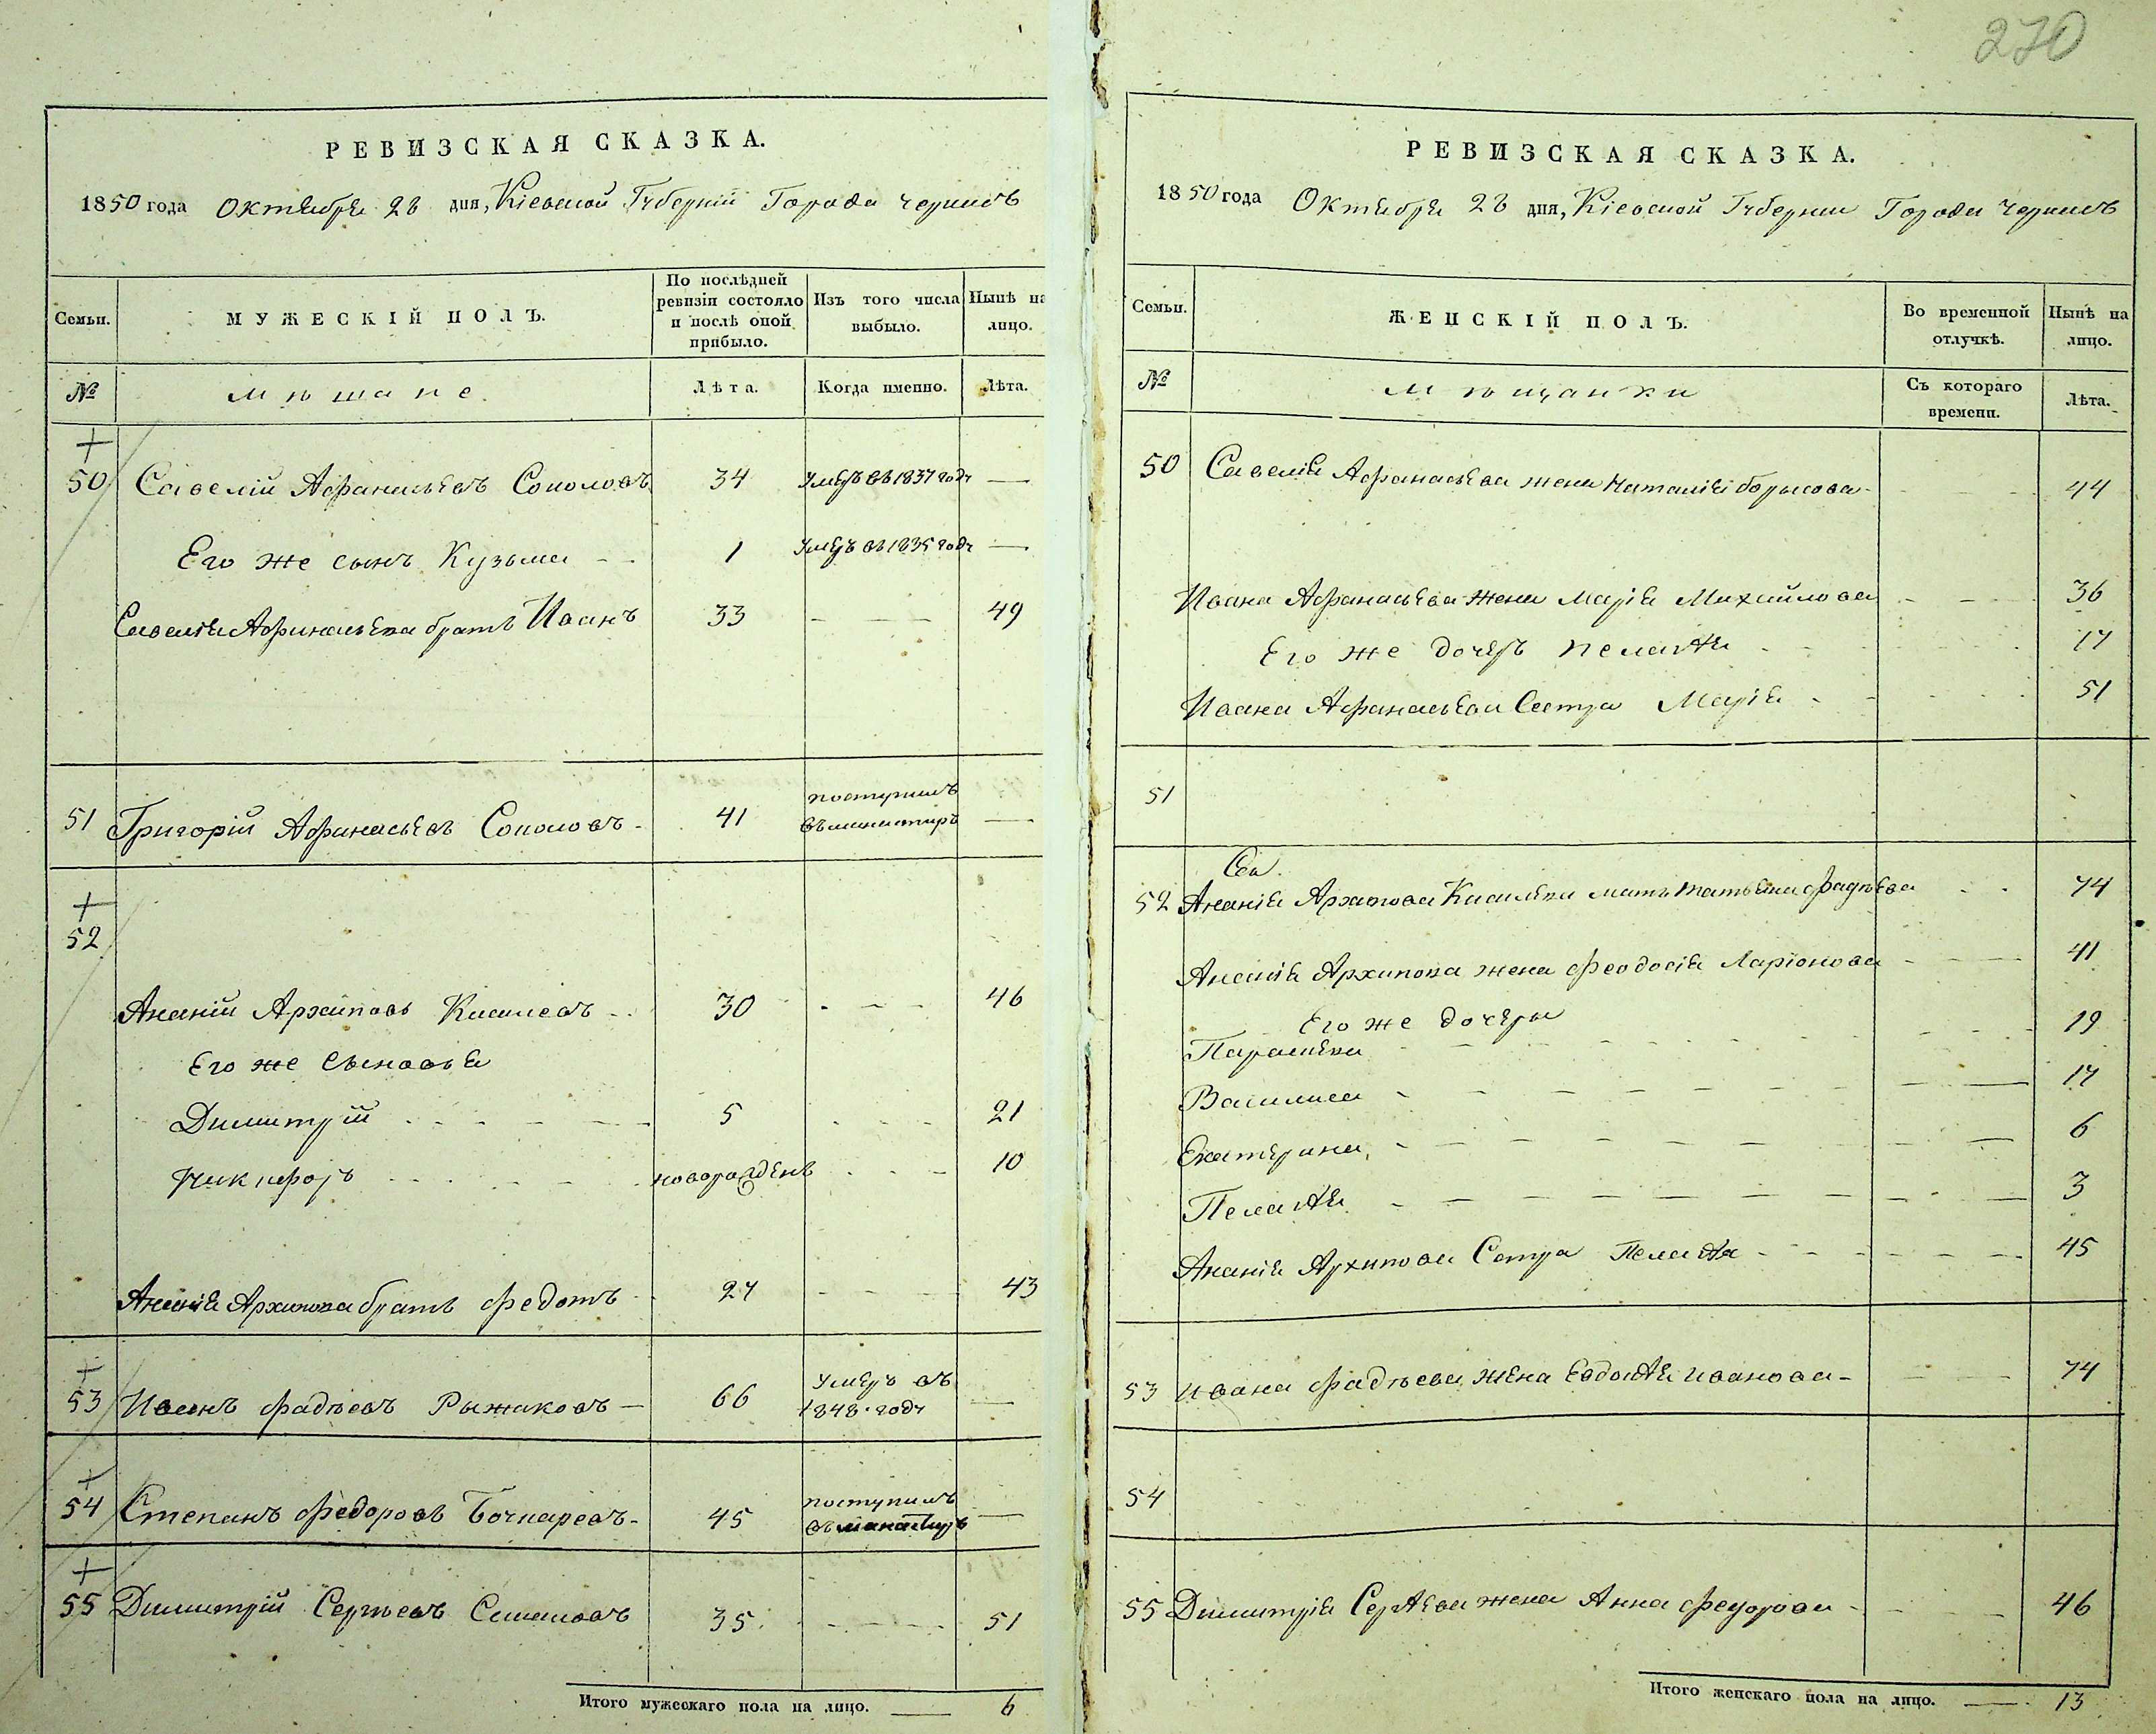 270
РЕВИЗСКАЯ СКАЗКА.
1850 года Октября 28 дня, Кіевской Губерніи Города
Семьи.
МУЖЕСКІЙ ПОЛЪ.
По послѣдней ревизіи состояло и послѣ оной прибыло.
Изъ того числа выбыло.
Нынѣ на лицо.
№
мѣщане
Лѣта.
Когда именно.
Лѣта.
50 Савелій Афанасьевъ Соколовъ 34 Умеръ въ 1837 году —
Его же сынъ Кузьма 1 Умеръ въ 1835 году —
Савелія Афанасьева братъ Иванъ 33 49
51 Григорій Афанасьевъ Соколовъ 41 поступилъ въ монастиръ —
52
Ананій Архиповъ Киселевъ 30 46
Его же Сыновья
Димитрій 5 21
Никифоръ новорожденъ 10
Ананія Архипова братъ Федотъ 27 43
53 Иванъ Фадѣевъ Рыжаковъ 66 Умеръ въ 1848 году —
54 Степанъ Федоровъ Бочкаревъ 45 поступилъ въ манастиръ —
55 Димитрій Сергѣевъ 35 51
Итого мужескаго пола на лицо. 6
РЕВИЗСКАЯ СКАЗКА.
1850 года Октября 28 дня, Кіевской Губернии Города
Семьи.
ЖЕНСКІЙ ПОЛЪ.
Во временной отлучкѣ.
Нынѣ на лицо.
№
мѣщанки
Съ котораго времени.
Лѣта.
50 Савелія Афанасьева жена Наталія Борисова 44
Ивана Афанасьева жена Марія Михайлова 36
Его же дочеръ Пелагія 17
Ивана Афанасьева Сестра Марія 51
51
52 Ананія Архипова Киселева мать Татьяна Фадѣева 74
Ананія Архипова жена Феодосія Ларіонова 41
Его же дочеры
Парасковя 19
Василиса 17
Екатерина 6
Пелагія 3
Ананія Архипова Сетра Пелагія 45
53 Ивана Фадѣева жена Евдокія Иванова 74
54
55 Димитрія Сергѣева жена Анна Федорова 46
Итого женскаго пола на лицо. 13